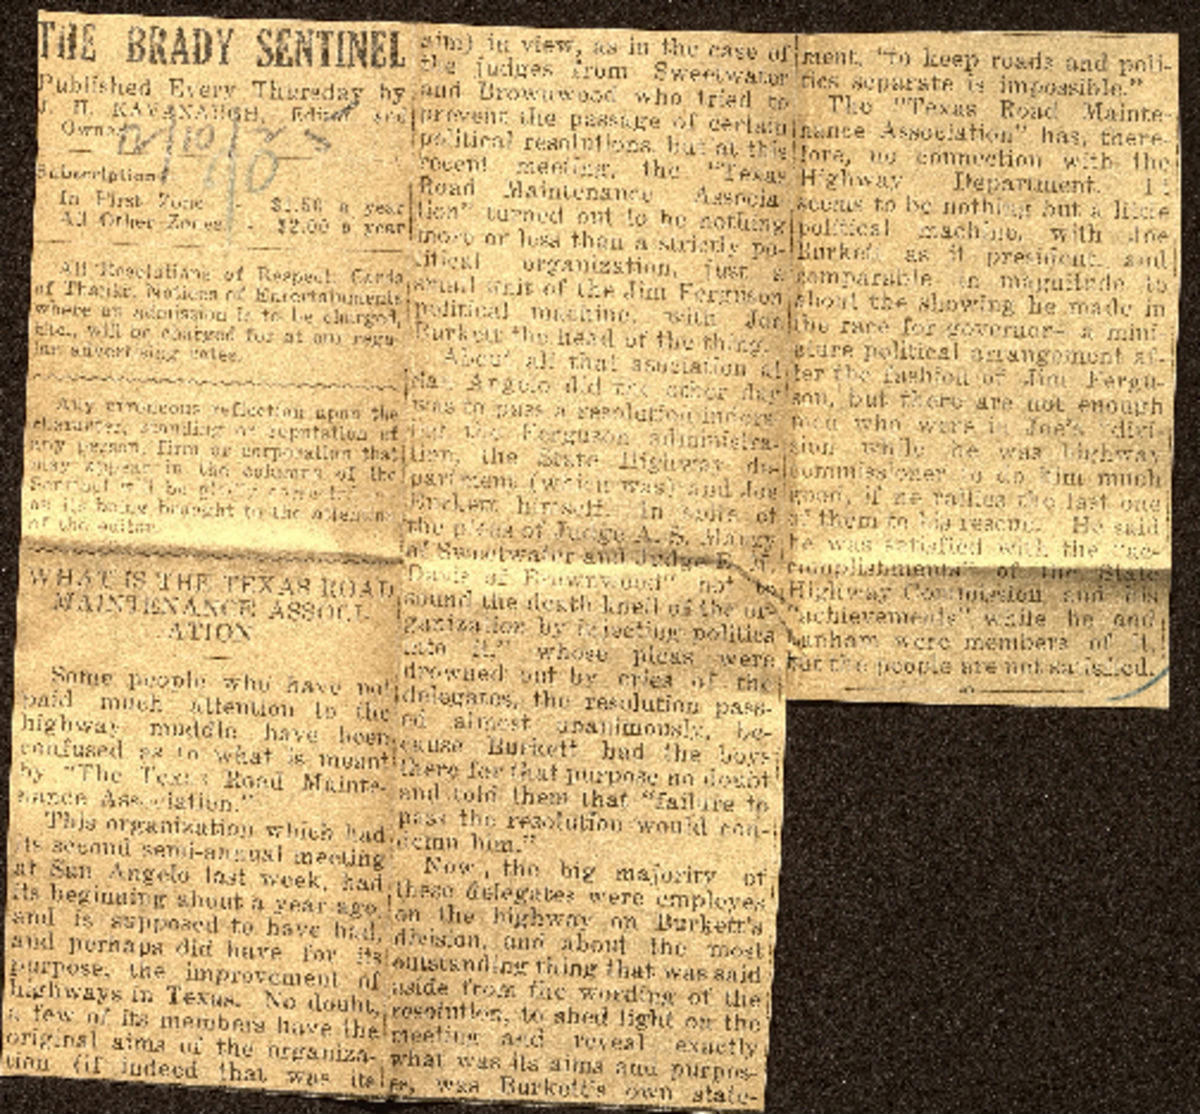 THE BRADY SENTINEL
Published Every Thursday by
J. H. KAVANAUGH, Editor and
Owner
Subscription
In First Zone - $1.50 a year
All Other Zones - $2.00 a year
All Resolutions of Respect, Cards
of Thanks, Notices of Entertainments
where an admission is to be charged,
etc., will be charged for at our regu-
lar advertising rates.
Any erroneous reflection upon the
character, standing or reputation of
any person, firm or corporation that
may appear in the columns of the
Sentinel will be gladly
its being brought to the attention
of the editor.
WHAT IS THE TEXAS ROAD
MAINTENANCE ASSOCI-
ATION
Some people who have not
paid much attention to the
highway muddle have been
confused as to what is meant
by "The Texas Road Mainte-
nance Association."
This organization which had
its second semi-annual meeting
at San Angelo last week, had
its beginning about a year ago
and is supposed to have had,
and perhaps did have for its
purpose, the improvement of
highways in Texas. No doubt,
a few of its members have the
original aims of the organiza-
tion (if indeed that was its
aim) in view, as in the case of
the judges from Sweetwater
and Brownwood who tried to
prevent the passage of certain
political resolutions, but at this
recent meeting, the "Texas
Road Maintenance Associa
tion" turned out to be nothing
more or less than a strictly po-
litical organization, just a
small unit of the Jim Ferguson
political machine, with Joe
Burkett the head of the thing.
About all that asociation at
San Angelo did the other day
was to pass a resolution indors-
ing the Ferguson administra-
tion, the State Highway de-
partment (which was) and Joe
Burkett himself. In spite of
the pleas of Judge A. S.
of Sweetwater and Judge E.
Davis of Brownwood" not to
sound the death knell of the or-
ganization by injecting politics
into it," whose pleas were
drowned out by cries of the
delegates, the resolution pass-
ed almost unanimously, be-
cause Burkett had the boys
there for that purpose no doubt
and told them that "failure to
pass the resolution would con-
demn him."
Now, the big majority of
these delegates were employes
on the highway on Burkett's
division, and about the most
outstanding thing that was said
aside from the wording of the
resolution, to shed light on the
meeting and reveal exactly
what was its aims and purpos-
es, was Burkett's own state-
ment, "to keep roads and poli-
tics separate is impossible."
The "Texas Road Mainte-
nance Association" has, there-
fore, no connection with the
Highway Department. It
seems to be nothing but a little
political machine, with Joe
Burkett as it president, and
comparable in magnitude to
about the showing he made in
the race for governor- a mini-
ature political arrangement af-
ter the fashion of Jim Fergu-
son, but there are not enough
men who were in Joe's divi-
sion while he was highway
commissioner to do him much
good, if he rallies the last one
of them to his rescue. He said
he was satisfied with the "ac-
complishments" of the State
Highway Commission and his
"achievements" while he and
Lanham were members of it,
but the people are not satisfied.